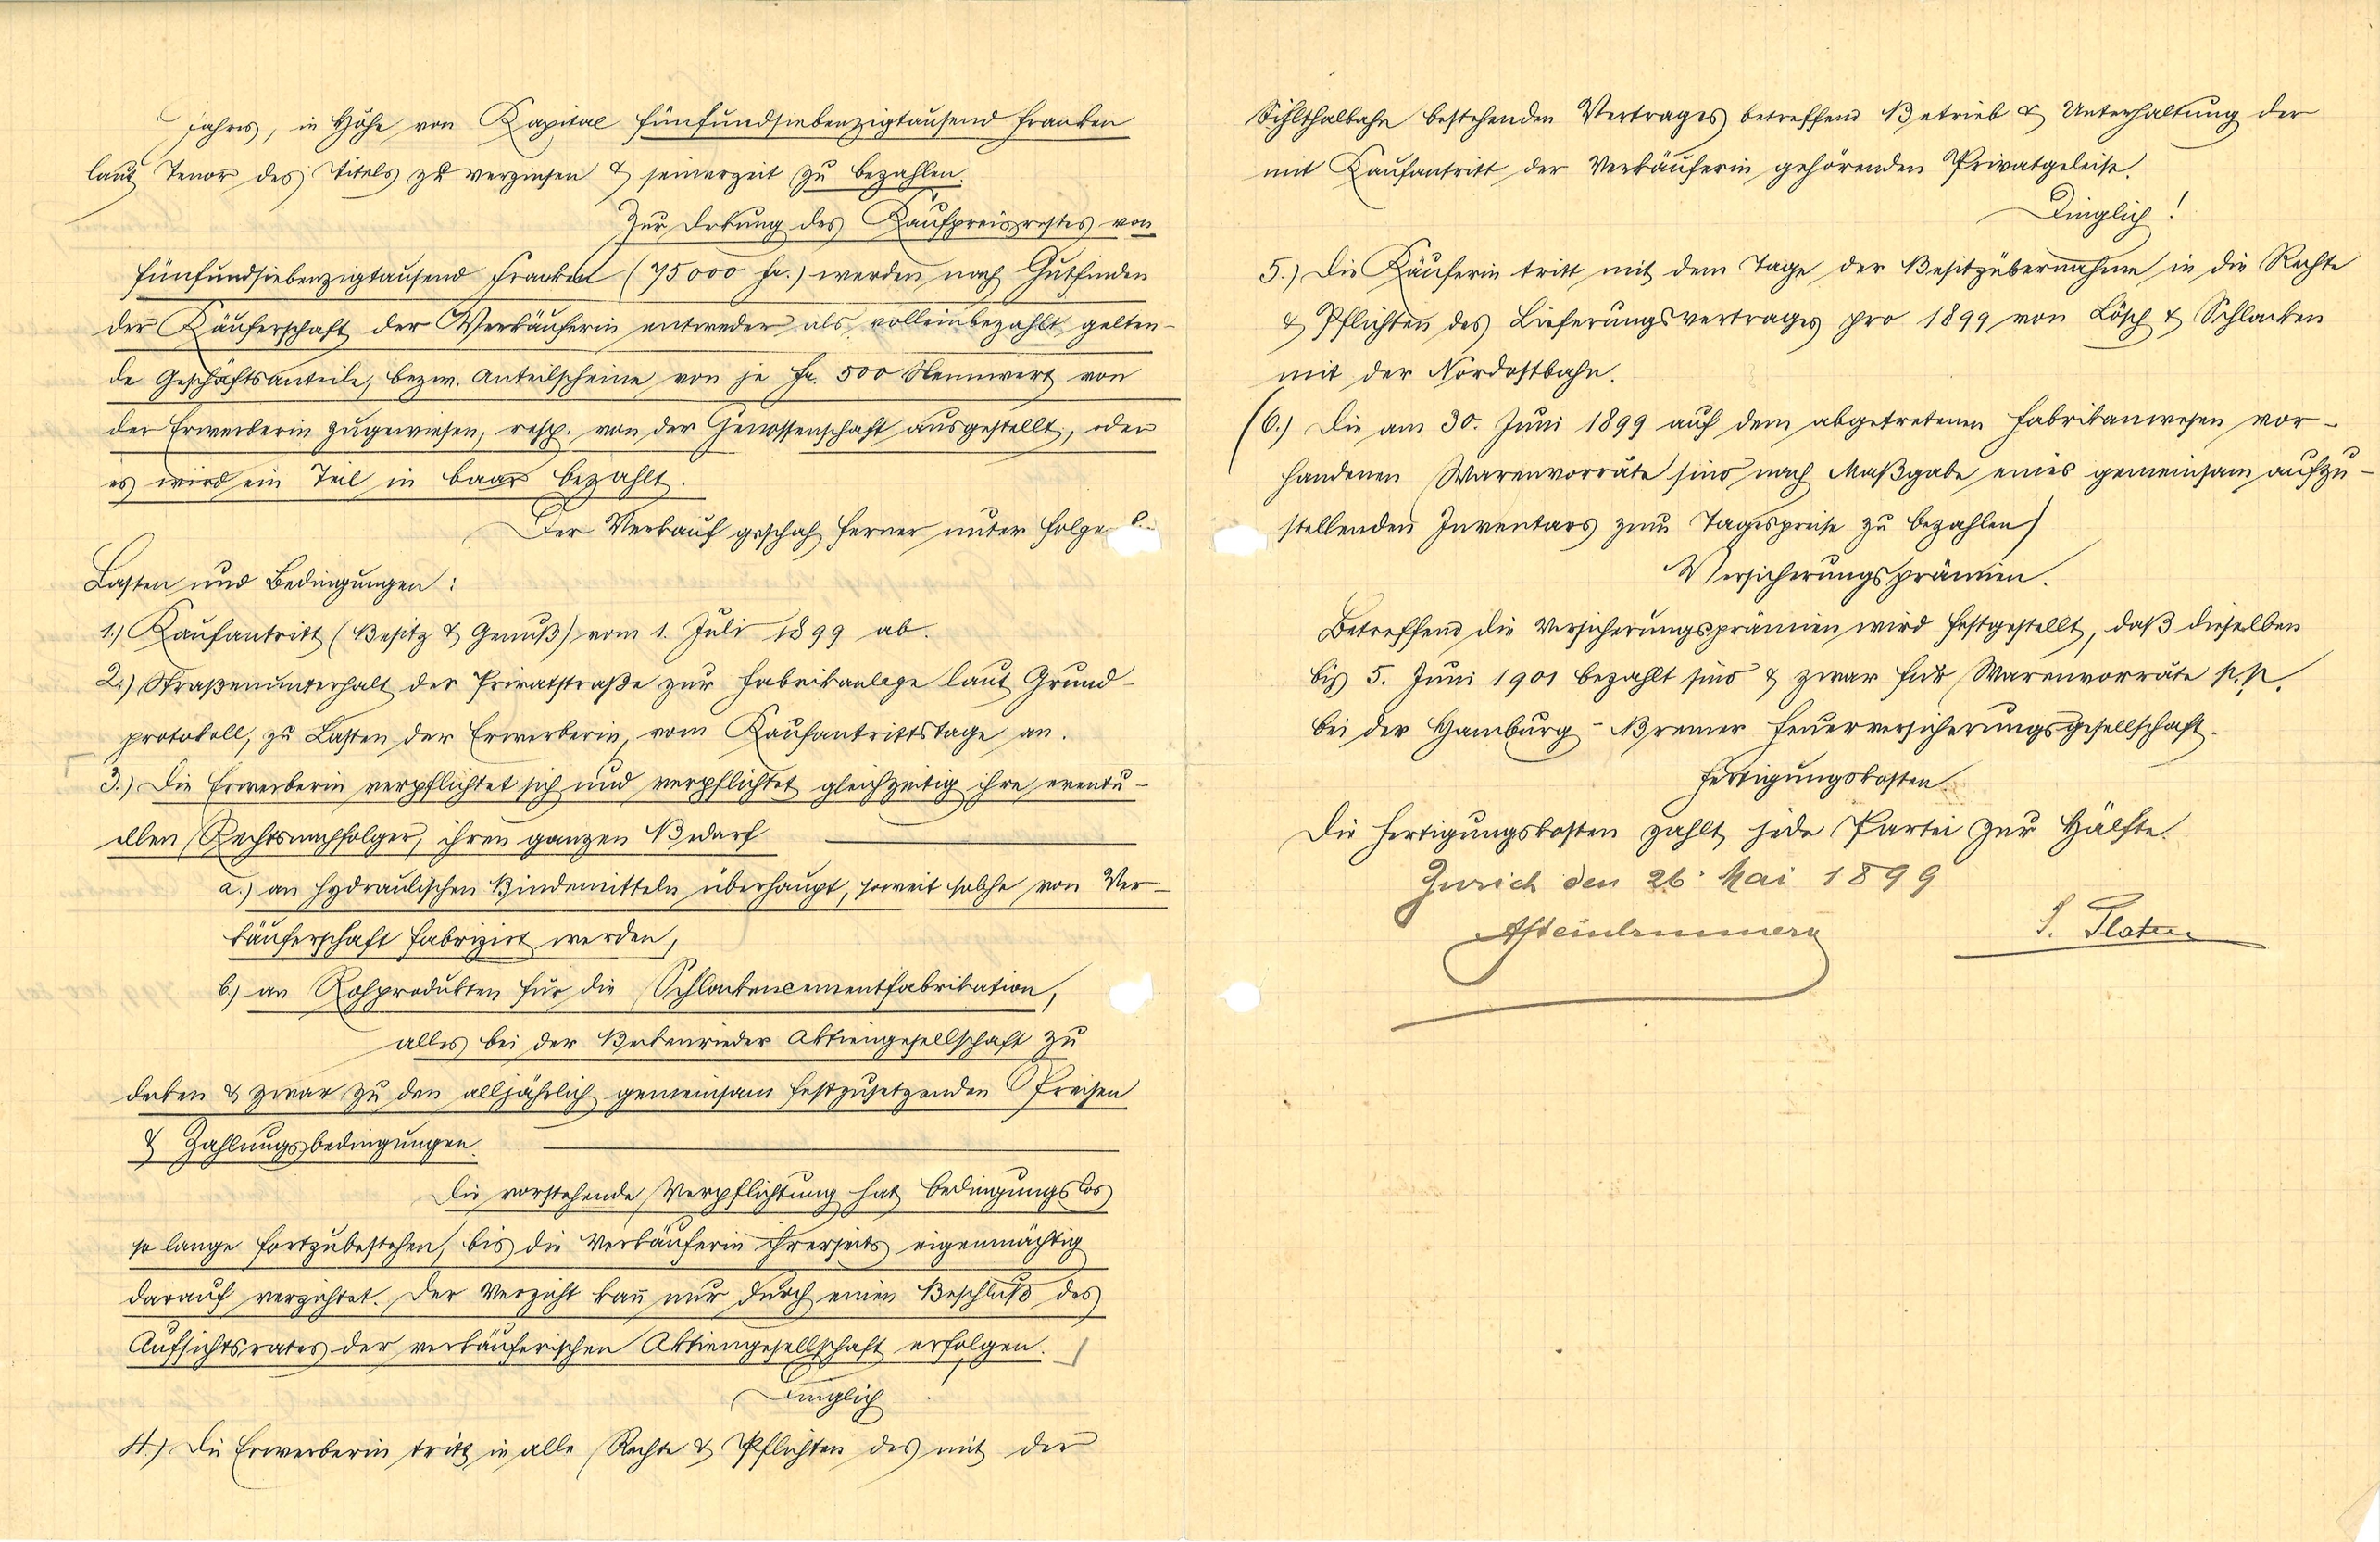 Jahres, in Höhe von Kapital fünfundsiebenzigtausend Franken
laut Tenor des Titels zu verzinsen & seinerzeit zu bezahlen.
Zur Dekung des Kaufpreisrestes von
fünfundsiebenzigtausend Franken (75000 fr.) werden nach Gutfinden
der Käuferschaft der Verkäuferin entweder als volleinbezahlt gelten-
de Geschäftsanteile, bezw. Anteilscheine von je fr. 500 Nennwert von
der Erwerberin zugewiesen, resp. von der Genossenschaft ausgestellt, oder
es wird ein Teil in baar bezahlt.
Der Verkauf geschah ferner unter
Lasten und Bedingungen:
1.) Kaufantritt (Besitz & Genuß) vom 1. Juli 1899 ab.
2.) Straßenunterhalt der Privatstraße zur Fabrikanlage laut Grund-
protokoll, zu Lasten der Erwerberin, vom Kaufantrittstage an.
3.) Die Erwerberin verpflichtet sich und verpflichtet gleichzeitig ihre eventu-
ellen Rechtsnachfolger, ihren ganzen Bedarf
a.) an hydraulischen Bindemitteln überhaupt, soweit solche von Ver-
käuferschaft fabrizirt werden,
b.) an Rohprodukten für die Schlackencementfabrikation,
alles bei der Beckenrieder Aktiengesellschaft zu
decken & zwar zu den alljährlich gemeinsam festzusetzenden Preisen
& Zahlungsbedingungen.
Die vorstehende Verpflichtung hat bedingungslos
so lange fortzubestehen, bis die Verkäuferin ihrerseits eigenmächtig
darauf verzichtet. Der Verzicht kañ nur durch einen Beschluß des
Aufsichtsrates der verkäuferischen Aktiengesellschaft erfolgen.
Dinglich!
4.) Die Erwerberin tritt in alle Rechte & Pflichten des mit der
Sihlthalbahn bestehenden Vertrages betreffend Betrieb & Unterhaltung der
mit Kaufantritt der Verkäuferin gehörenden Privatgeleise.
Dinglich!
5.) Die Käuferin tritt mit dem Tage der Besitzübernahme in die Rechte
& Pflichten des Lieferungsvertrages pro 1899 von Lösch & Schlacken
mit der Nordostbahn.
(6.) Die am 30. Juni 1899 auf dem abgetretenen Fabrikanwesen vor-
handenen Warenvorräte sind nach Maßgabe eines gemeinsam aufzu-
stellenden Inventars zum Tagespreise zu bezahlen)
Versicherungsprämien.
Betreffend die Versicherungsprämien wird festgestellt, daß dieselben
bis 5. Juni 1901 bezahlt sind & zwar für Warenvorräte p.p.
bei der Hamburg-Bremer Feuerversicherungsgesellschaft.
Fertigungskosten.
Die Fertigungskosten zahlt jede Partei zur Hälfte.
Zürich den 26. Mai 1899
Platen